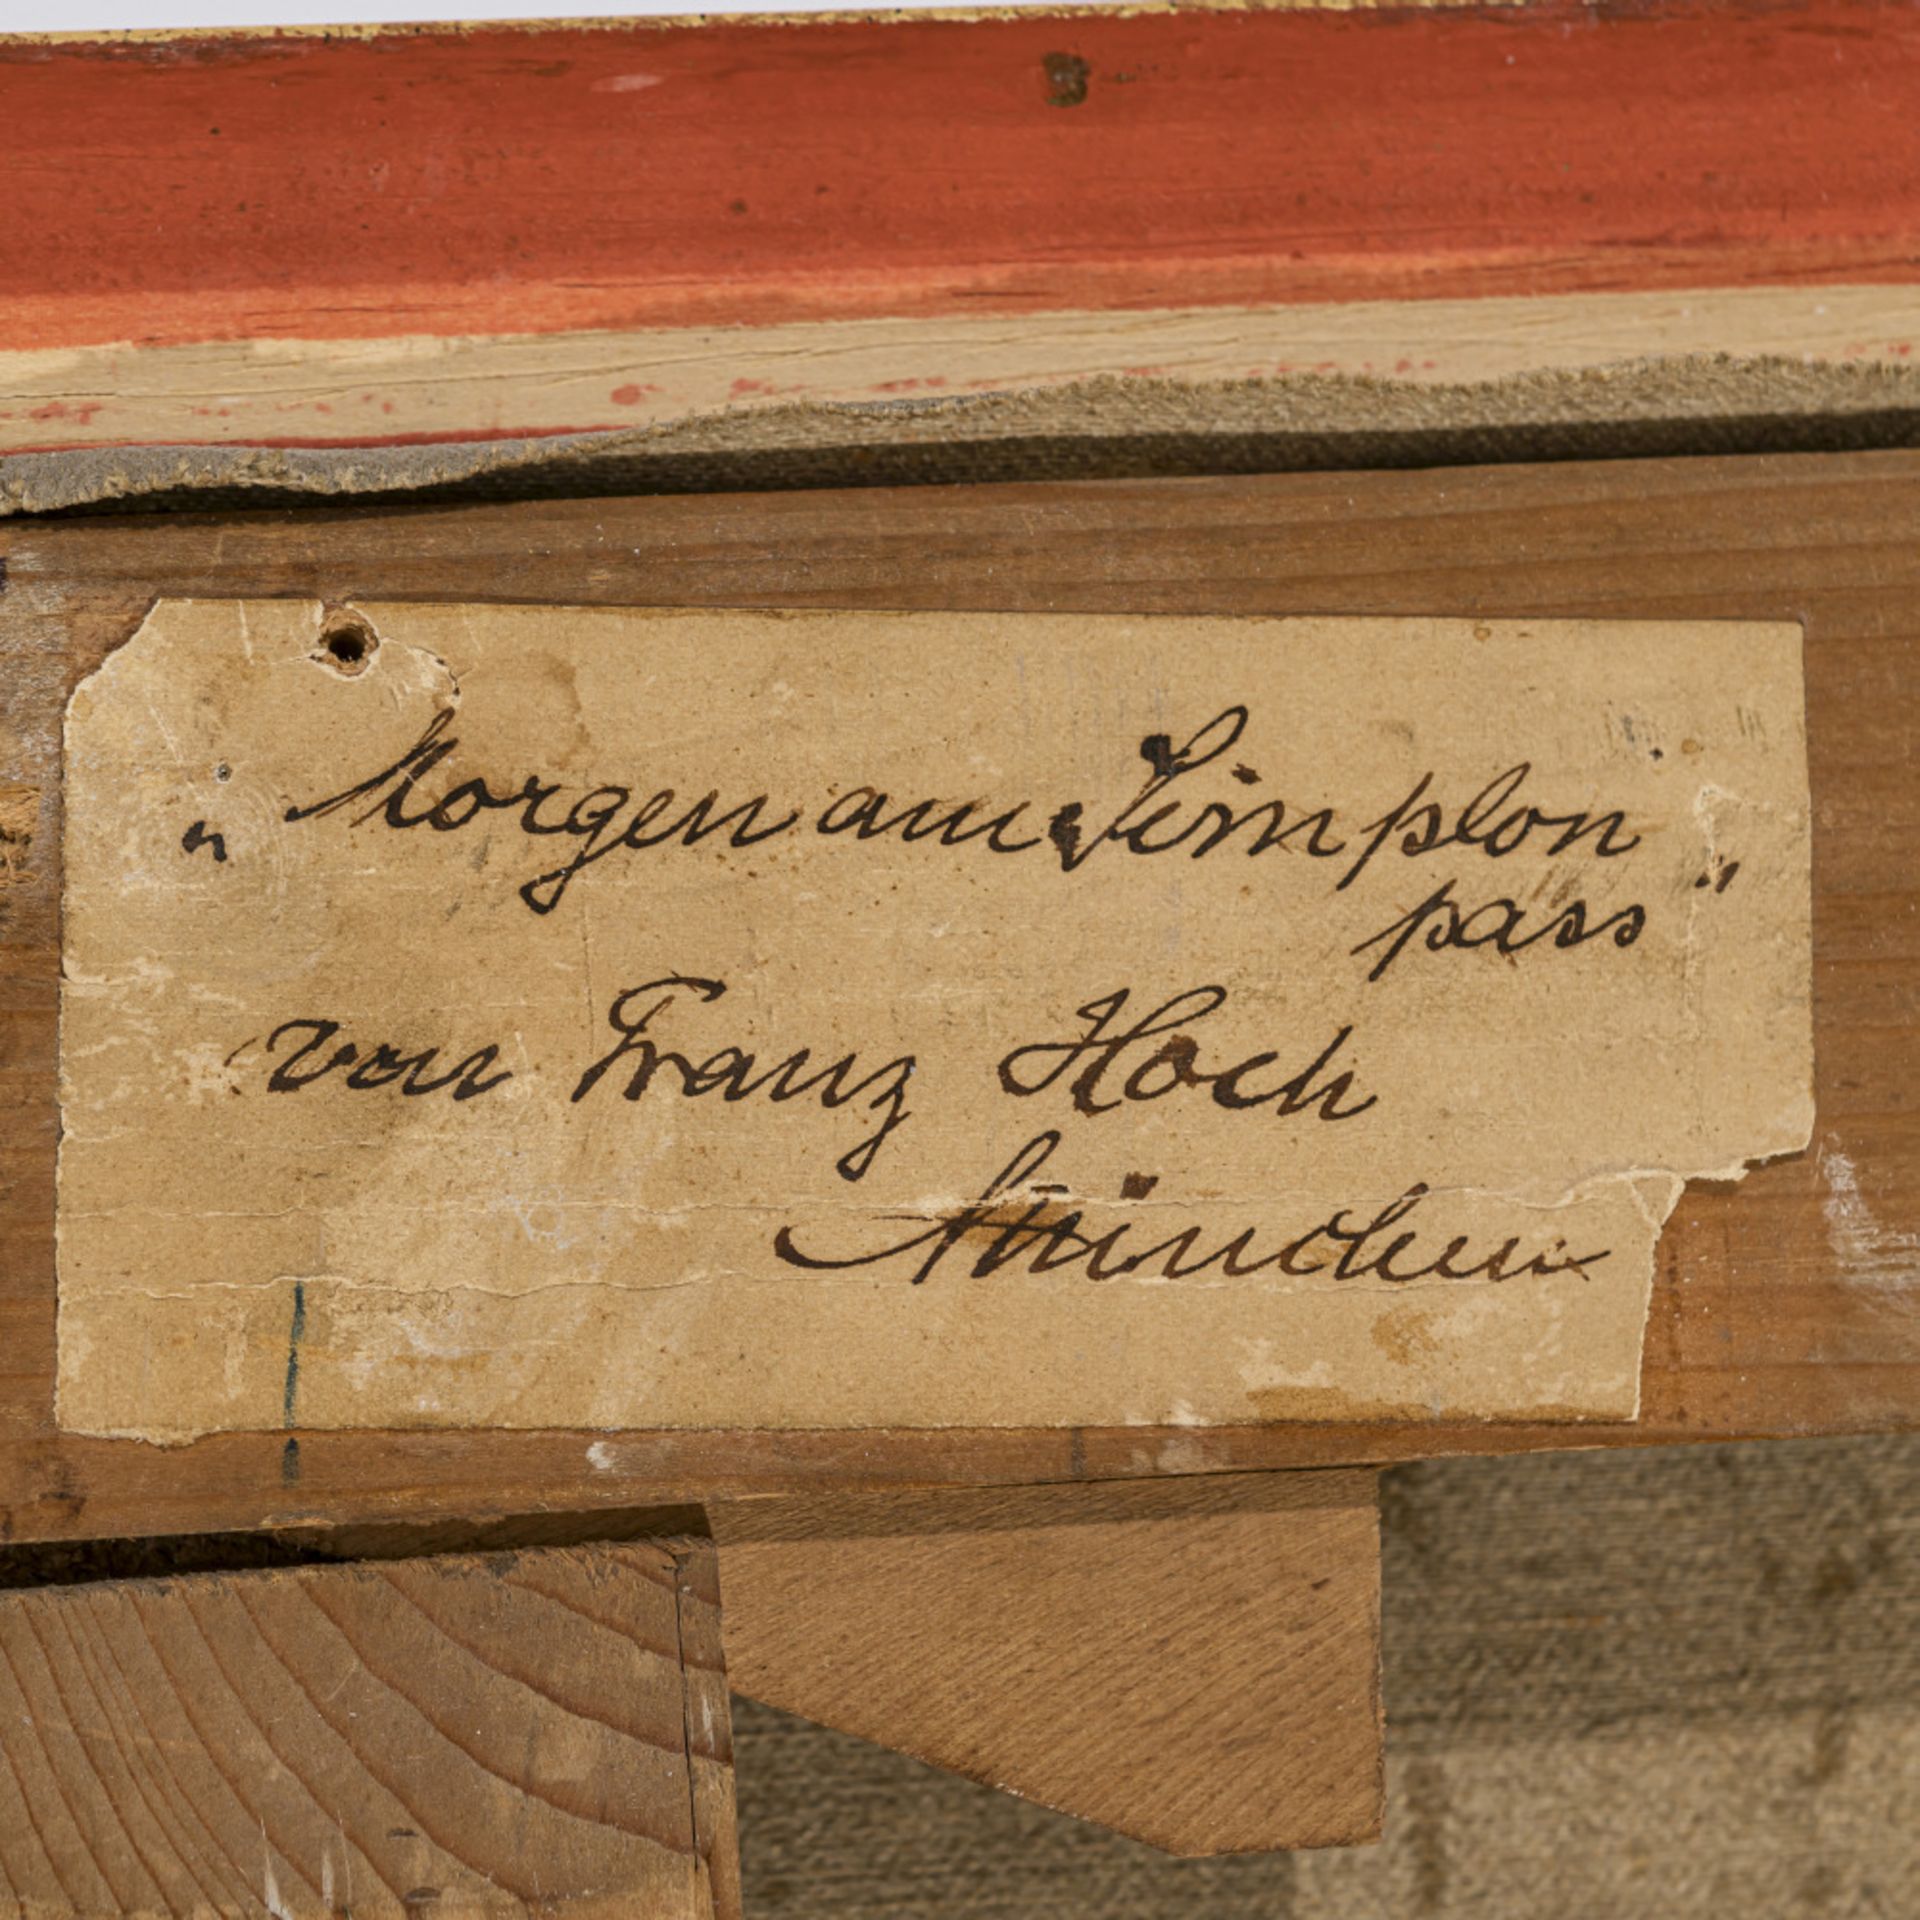 „Morgen am Simplon
pass"
von Franz Hoch
München